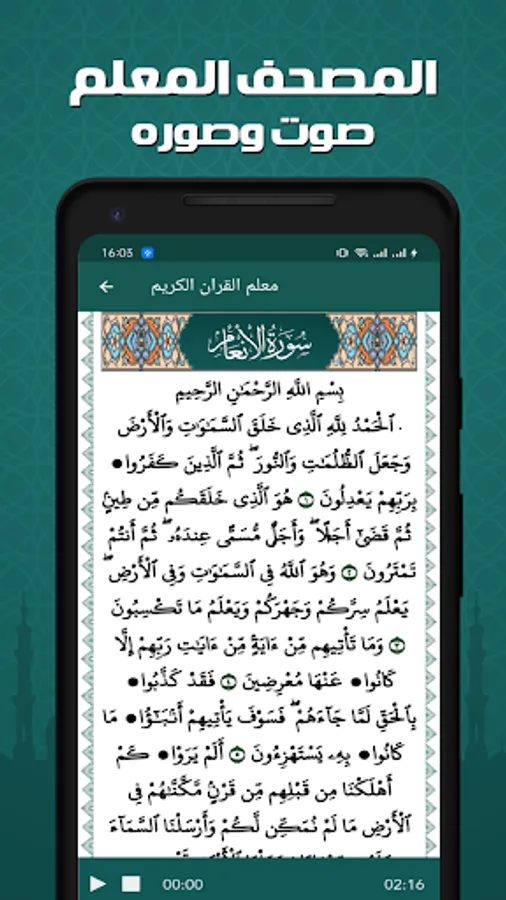 المصحف المعلم
صوت وصوره
16:03
معلم القران الكريم
سُورَةُ الأَنْعَامِ
بِسْمِ اللَّهِ الرَّحْمَٰنِ الرَّحِيمِ
. ٱلْحَمْدُ لِلَّهِ ٱلَّذِى خَلَقَ ٱلسَّمَٰوَٰتِ وَٱلْأَرْضَ
وَجَعَلَ ٱلظُّلُمَٰتِ وَٱلنُّورَ ۖ ثُمَّ ٱلَّذِينَ كَفَرُوا●
بِرَبِّهِمْ يَعْدِلُونَ ١ هُوَ ٱلَّذِى خَلَقَكُم مِّن طِينٍ
ثُمَّ قَضَىٰٓ أَجَلًا ۖ وَأَجَلٌ مُّسَمًّى عِندَهُۥ ۖ ثُمَّ أَنتُمْ
تَمْتَرُونَ ٢ وَهُوَ ٱللَّهُ فِى ٱلسَّمَٰوَٰتِ وَفِى ٱلْأَرْضِ ۖ
يَعْلَمُ سِرَّكُمْ وَجَهْرَكُمْ وَيَعْلَمُ مَا تَكْسِبُونَ
٣ وَمَا تَأْتِيهِم مِّنْ ءَايَةٍ مِّنْ ءَايَٰتِ رَبِّهِمْ إِلَّا
كَانُوا● عَنْهَا مُعْرِضِينَ ٤ فَقَدْ كَذَّبُوا●
بِٱلْحَقِّ لَمَّا جَآءَهُمْ ۖ فَسَوْفَ يَأْتِيهِمْ أَنۢبَٰٓؤُا● مَا
كَانُوا● بِهِۦ يَسْتَهْزِءُونَ ٥ أَلَمْ يَرَوْا● كَمْ
أَهْلَكْنَا مِن قَبْلِهِم مِّن قَرْنٍ مَّكَّنَّٰهُمْ فِى
ٱلْأَرْضِ مَا لَمْ نُمَكِّن لَّكُمْ وَأَرْسَلْنَا ٱلسَّمَآءَ
00:00
02:16